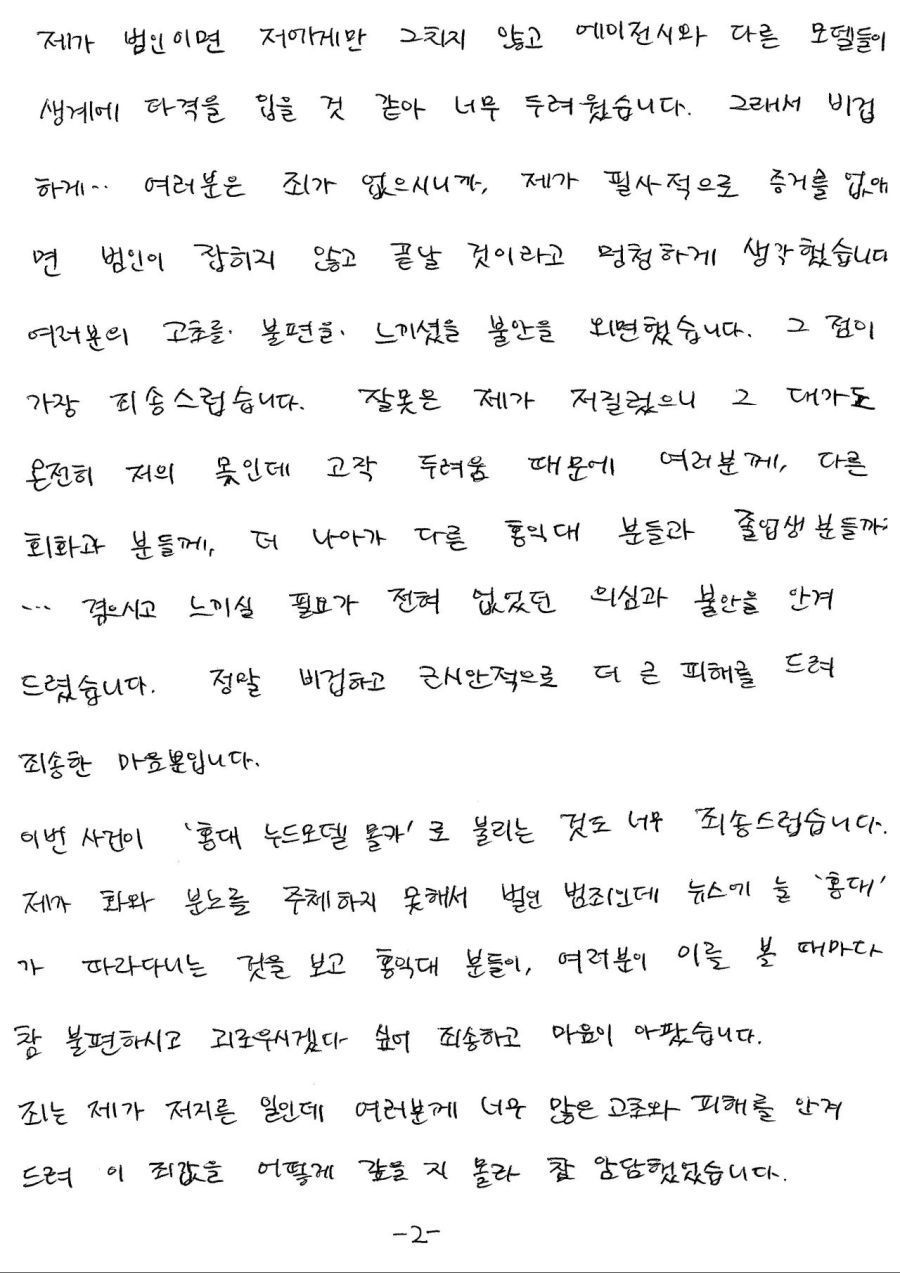 제가 범인이면 저에게만 그치지 않고 에이전시와 다른 모델들이
생계에 타격을 입을 것 같아 너무 두려웠습니다. 그래서 비겁
하게.. 여러분은 죄가 없으시니까, 제가 필사적으로 증거를 없애
면 범인이 잡히지 않고 끝날 것이라고 멍청하게 생각했습니다
여러분의 고초를· 불편을· 느끼셨을 불안을 외면했습니다. 그 점이
가장 죄송스럽습니다. 잘못은 제가 저질렀으니 그 대가도
온전히 저의 몫인데 고작 두려움 때문에 여러분께, 다른
회화과 분들께, 더 나아가 다른 홍익대 분들과 졸업생분들까지
... 겪으시고 느끼실 필요가 전혀 없었던 의심과 불안을 안겨
드렸습니다. 정말 비겁하고 근시안적으로 더 큰 피해를 드려
죄송한 마음뿐입니다.
이번 사건이 '홍대 누드모델 몰카'로 불리는 것도 너무 죄송스럽습니다.
제가 화와 분노를 주체하지 못해서 벌인 범죄인데 뉴스에 늘 '홍대'
가 따라다니는 것을 보고 홍익대 분들이, 여러분이 이를 볼 때마다
참 불편하시고 괴로우시겠다 싶어 죄송하고 마음이 아팠습니다.
죄는 제가 저지른 일인데 여러분께 너무 많은 고초와 피해를 안겨
드려 이 죄값을 어떻게 갚을 지 몰라 참 암담했었습니다.
-2-